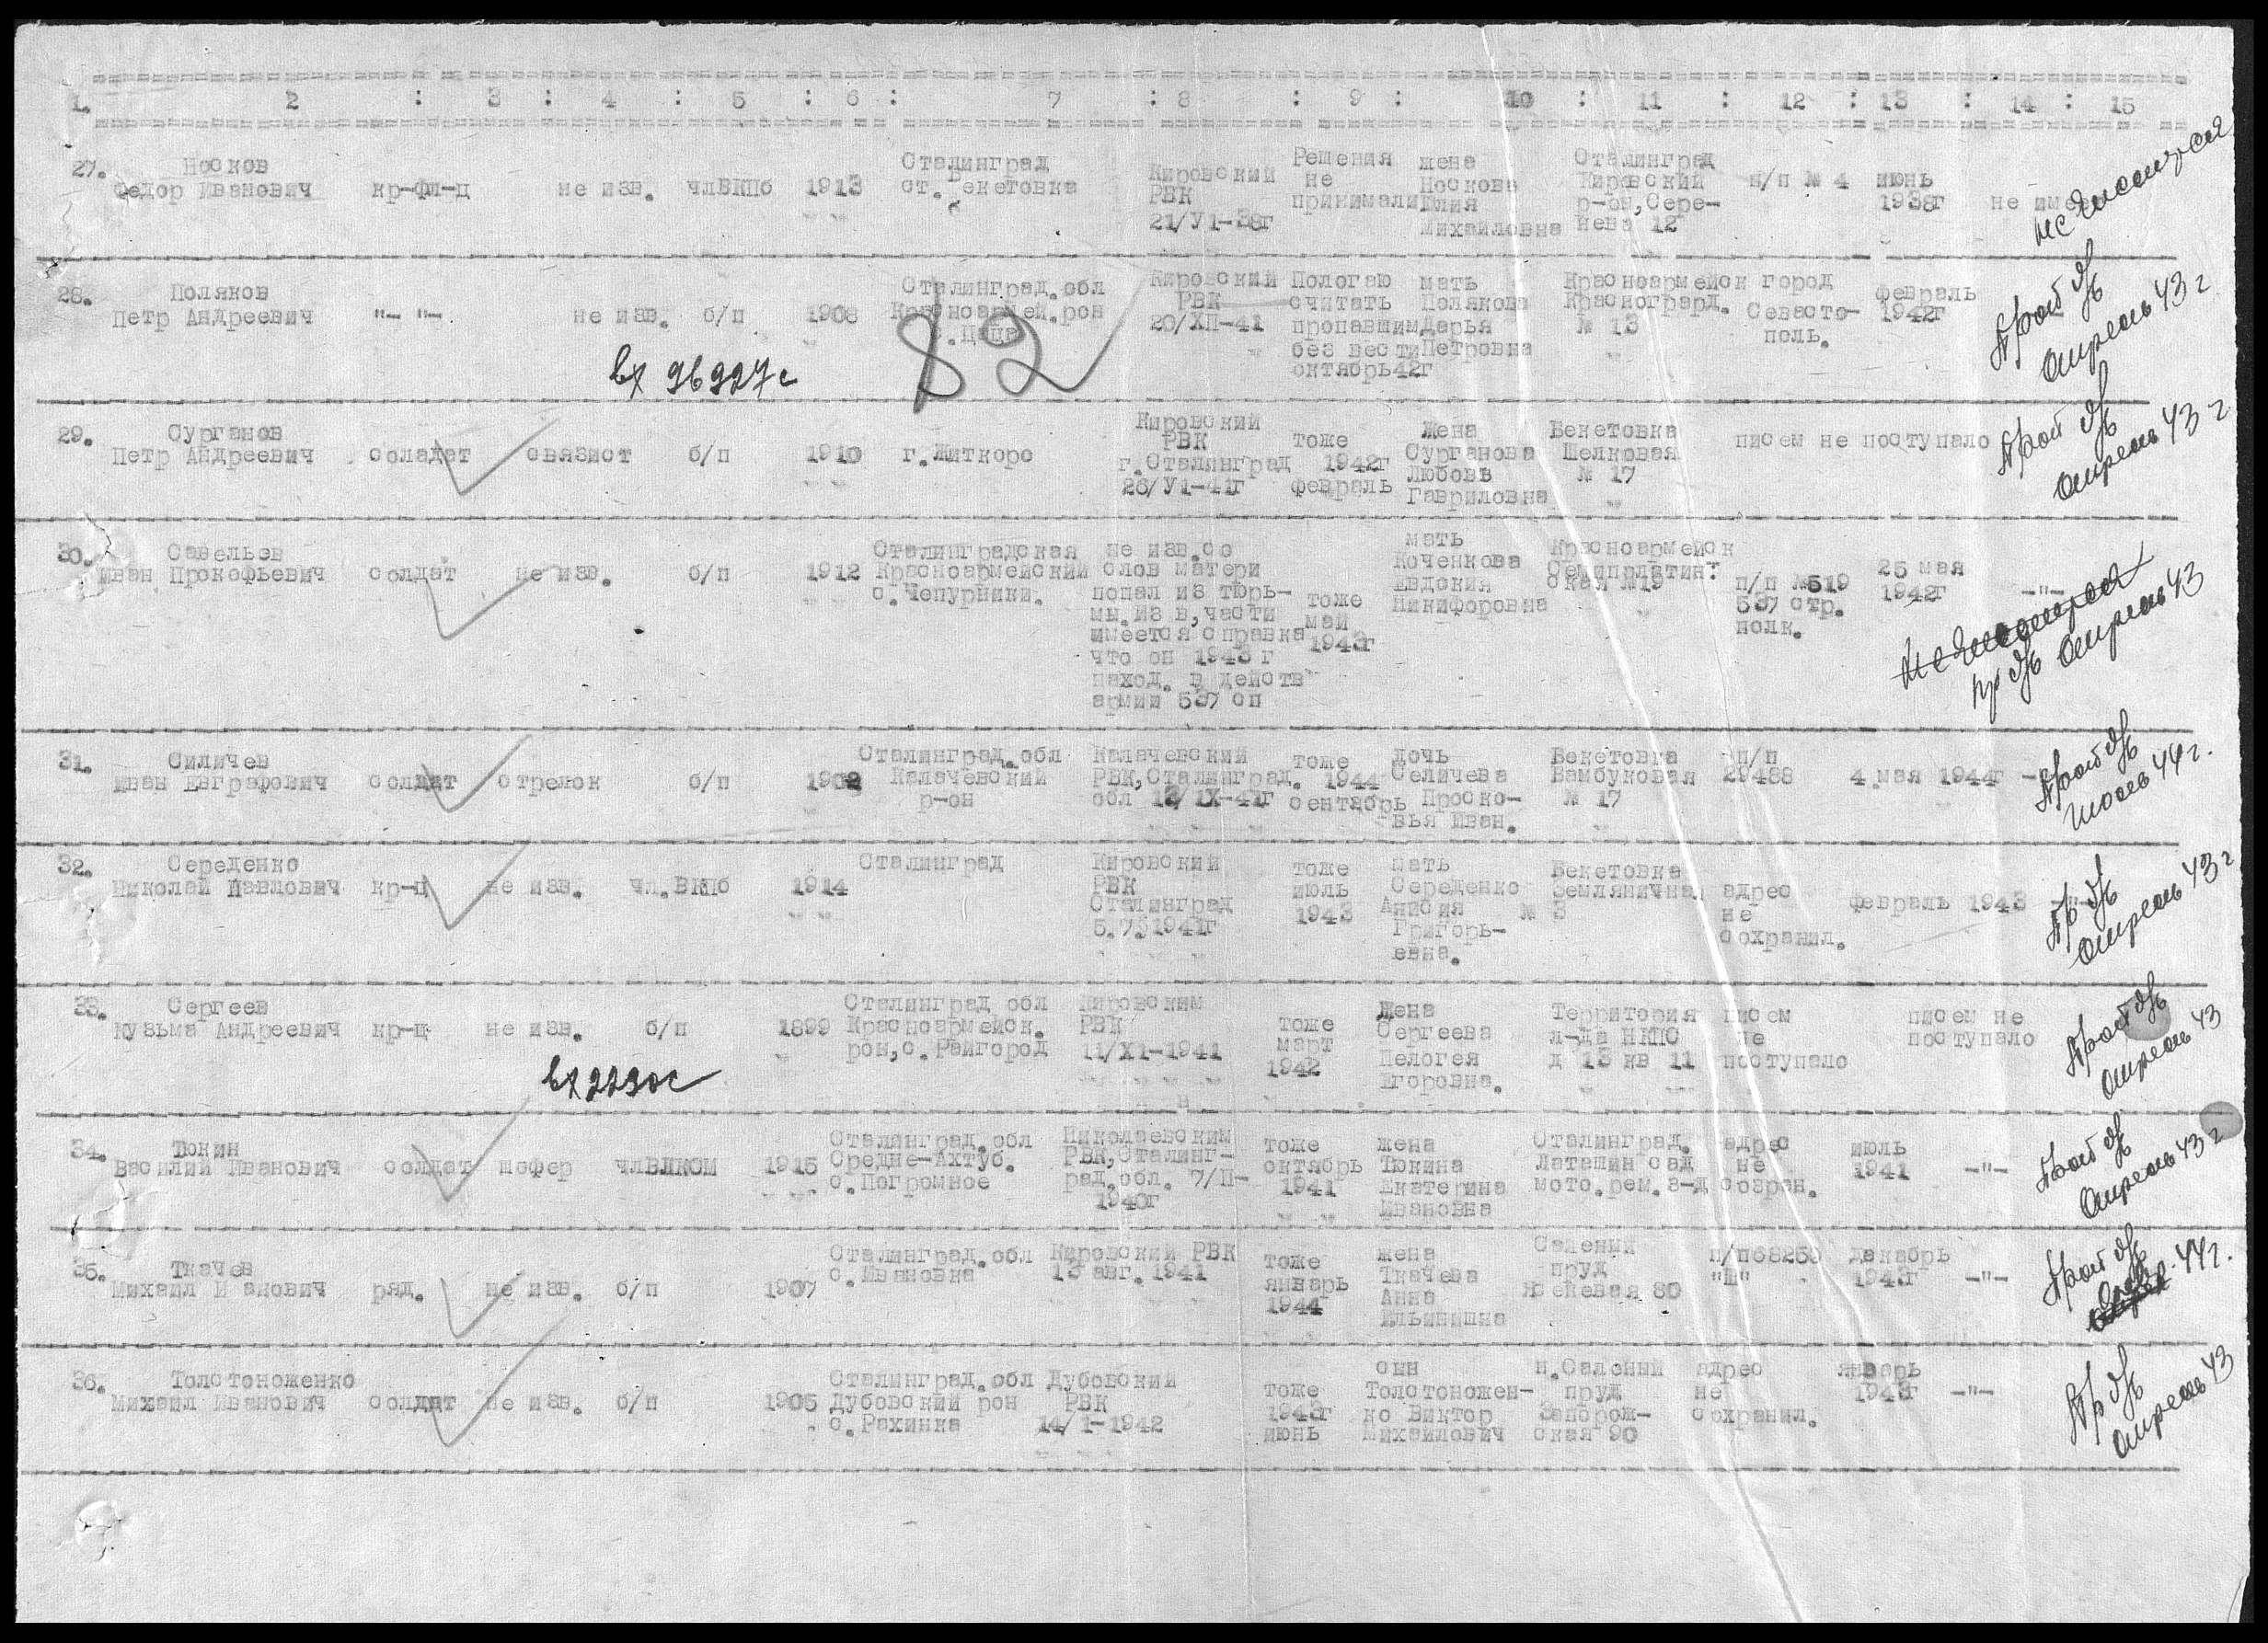 1. 2 : 3 : 4 : 5 : 6 : 7 : 8 : 9 : 10 : 11 : 12 : 13 : 14 : 15
27. Носков Сталинград Решения жена Сталинград
Федор Иванович кр-фл-ц не изв. члВКПб 1913 ст. Бекетовка Кировский не Носкова Кировский п/п № 4 июнь
РВК принимали Юлия р-он, Сере- 1938г не имеет
21/У1-38г Михайловна нева 12
не значится
28. Поляков Сталинград.обл Кировский Пологаю мать Красноармейск город февраль
Петр Андреевич "- "- не изв. б/п 1908 Красноармей.рон РВК считать Полякова Красногвард. Севасто- 1942г
с. Цаца 20/ХП-41 пропавшим Дарья № 13 поль.
без вести Петровна
октябрь42г
вх 96927с
82
Апрель 43 г
29. Сурганов Кировский Жена Бекетовка
Петр Андреевич соладат связист б/п 1910 г.Житкорс РВК тоже Сурганова Шелковая писем не поступало
г.Сталинград 1942г Любовь № 17
26/У1-41г февраль Гавриловна
Апрель 43 г
30. Савельев Сталинградская не изв.со мать Красноармейск
Иван Прокофьевич солдат не изв. б/п 1912 Красноармейский слов матери Коченкова Семипалатин. 25 мая
с.Чепурники. попал из тюрь- тоже Евдокия ская №19 п/п №519 1942г -"-
мы.Из в,части май Никифоровна 537 стр.
имеется справка 1943г полк.
что он 1943 г
наход. в действ
армии 537 сп
не значится
Апрель 43
31. Силичев Сталинград.обл Калачевский тоже дочь Бекетовка п/п
Иван Евграфович солдат стрелок б/п 1902 Калачевский РВК,Сталинград. 1944 Селичева Бамбуковая 29488 4.мая 1944г
р-он обл 12/1Х-41г сентябрь Проско- № 17
вья Иван.
Июль 44г.
32. Середенко Сталинград Кировский тоже мать Бекетовка
Николай Павлович кр-ц не изв. чл.ВКПб 1914 РВК июль Середенко Земляничная адрес февраль 1943 -"-
Сталинград 1943 Анисия № 3 не
5.7.1941г Григорь- сохранил.
евна.
Апрель 43 г
33. Сергеев Сталинград обл Кировским Жена Территория писем писем не
Кузьма Андреевич кр-ц не изв. б/п 1899 Красноармейск. РВК тоже Сергеева л-да НКПС не поступало
рон,с. Райгород 11/Х1-1941 март Пелогея д 13 кв 11 поступало
1942 Егоровна.
вх2230с
Апрель 43
34. Тюкин Сталинград.обл Николаевским тоже жена Сталинград. адрес июль
Василий Иванович солдат шофер члВЛКСМ 1915 Средне-Ахтуб. РВК,Сталинг- октябрь Тюкина Латашин сад не 1941 -"-
с.Погромное рад.обл. 7/П- 1941 Екатерина мото.рем.з-д созран.
1940г Ивановна
Апрель 43 г
35. Ткачев Сталинград.обл Кировский РВК тоже жена Саленый п/п68250 декабрь
Михаил И анович ряд. не изв. б/п 1907 с.Ивановка 13 авг. 1941 январь Ткачева пруд "Ш" 1943г -"-
1944 Анна Ясеневая 80
Ильинишна
44г.
36. Толстоноженко Сталинград.обл Дубовский сын п.Саленый адрес январь
Михаил Иванович солдат не изв. б/п 1905 Дубовский рон РВК тоже Толстоножен- пруд не 1943г -"-
с.Рахинка 14/1-1942 1943г ко Виктор Запорож- сохранил.
июнь Михайлович ская 90
Апрель 43